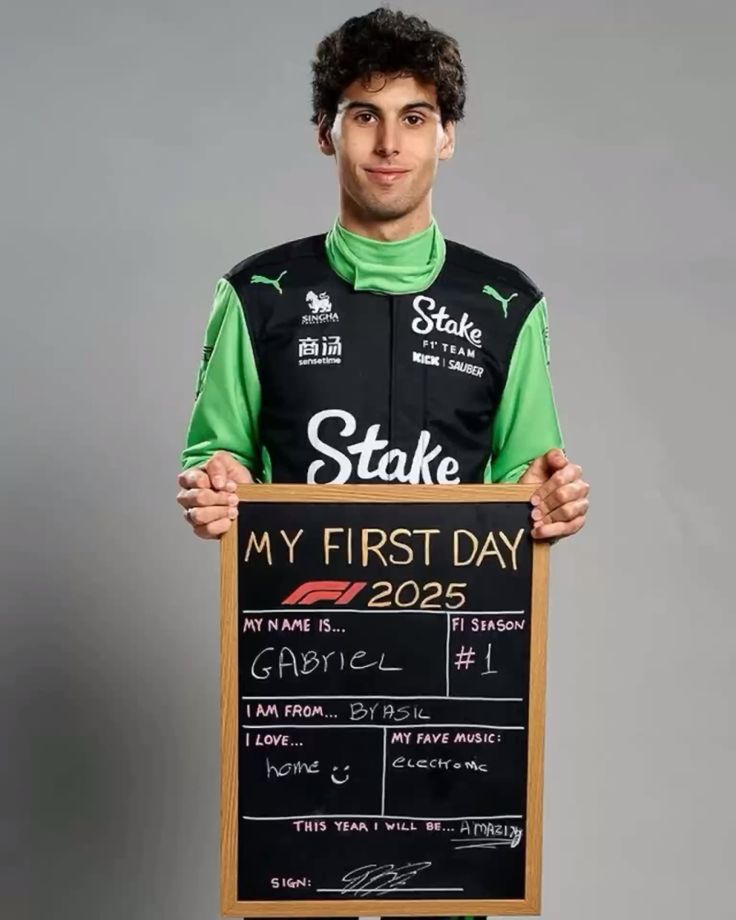 SINGHA
商汤
sensetime
Stake
F1 TEAM
KICK | SAUBER
Stake
MY FIRST DAY
F1 2025
MY NAME IS...
GABriEL
F1 SEASON
#1
I AM FROM... BrASIL
I LOVE...
home
MY FAVE MUSIC:
eLecTronic
THIS YEAR I WILL BE... AMAZING
SIGN: